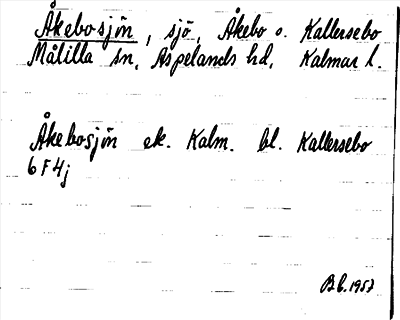 Åkebosjön, sjö, Åkebo o. Kallersebo
Målilla sn, Aspelands hd, Kalmar l.
Åkebosjön ek. Kalm. bl. Kallersebo
6 F 4j
1957